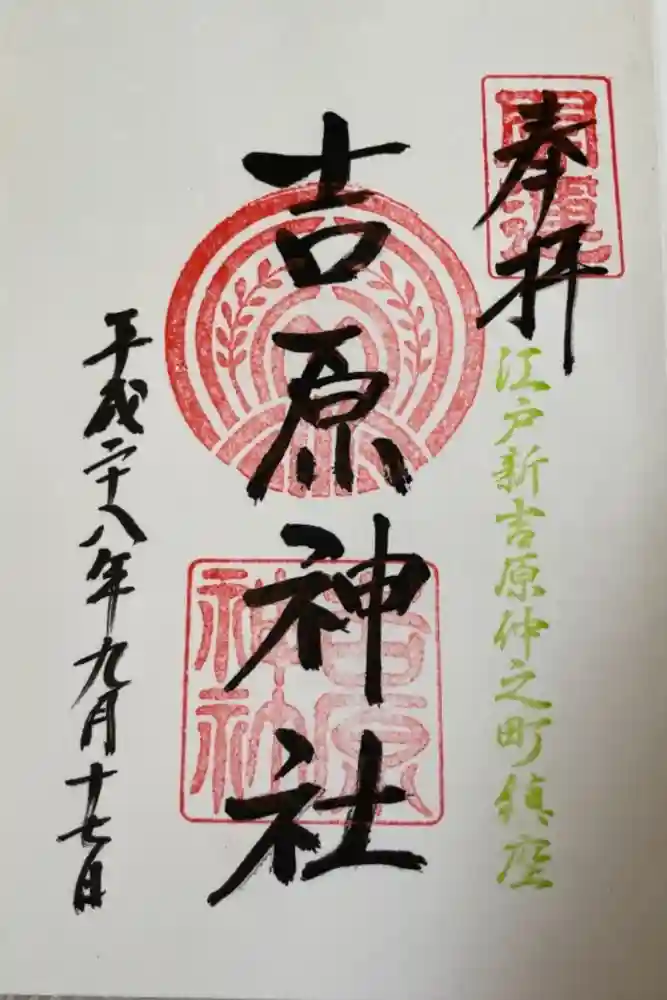 奉拝
開運
江戸新吉原仲之町鎮座
吉原神社
吉原
神社
平成二十八年九月十七日